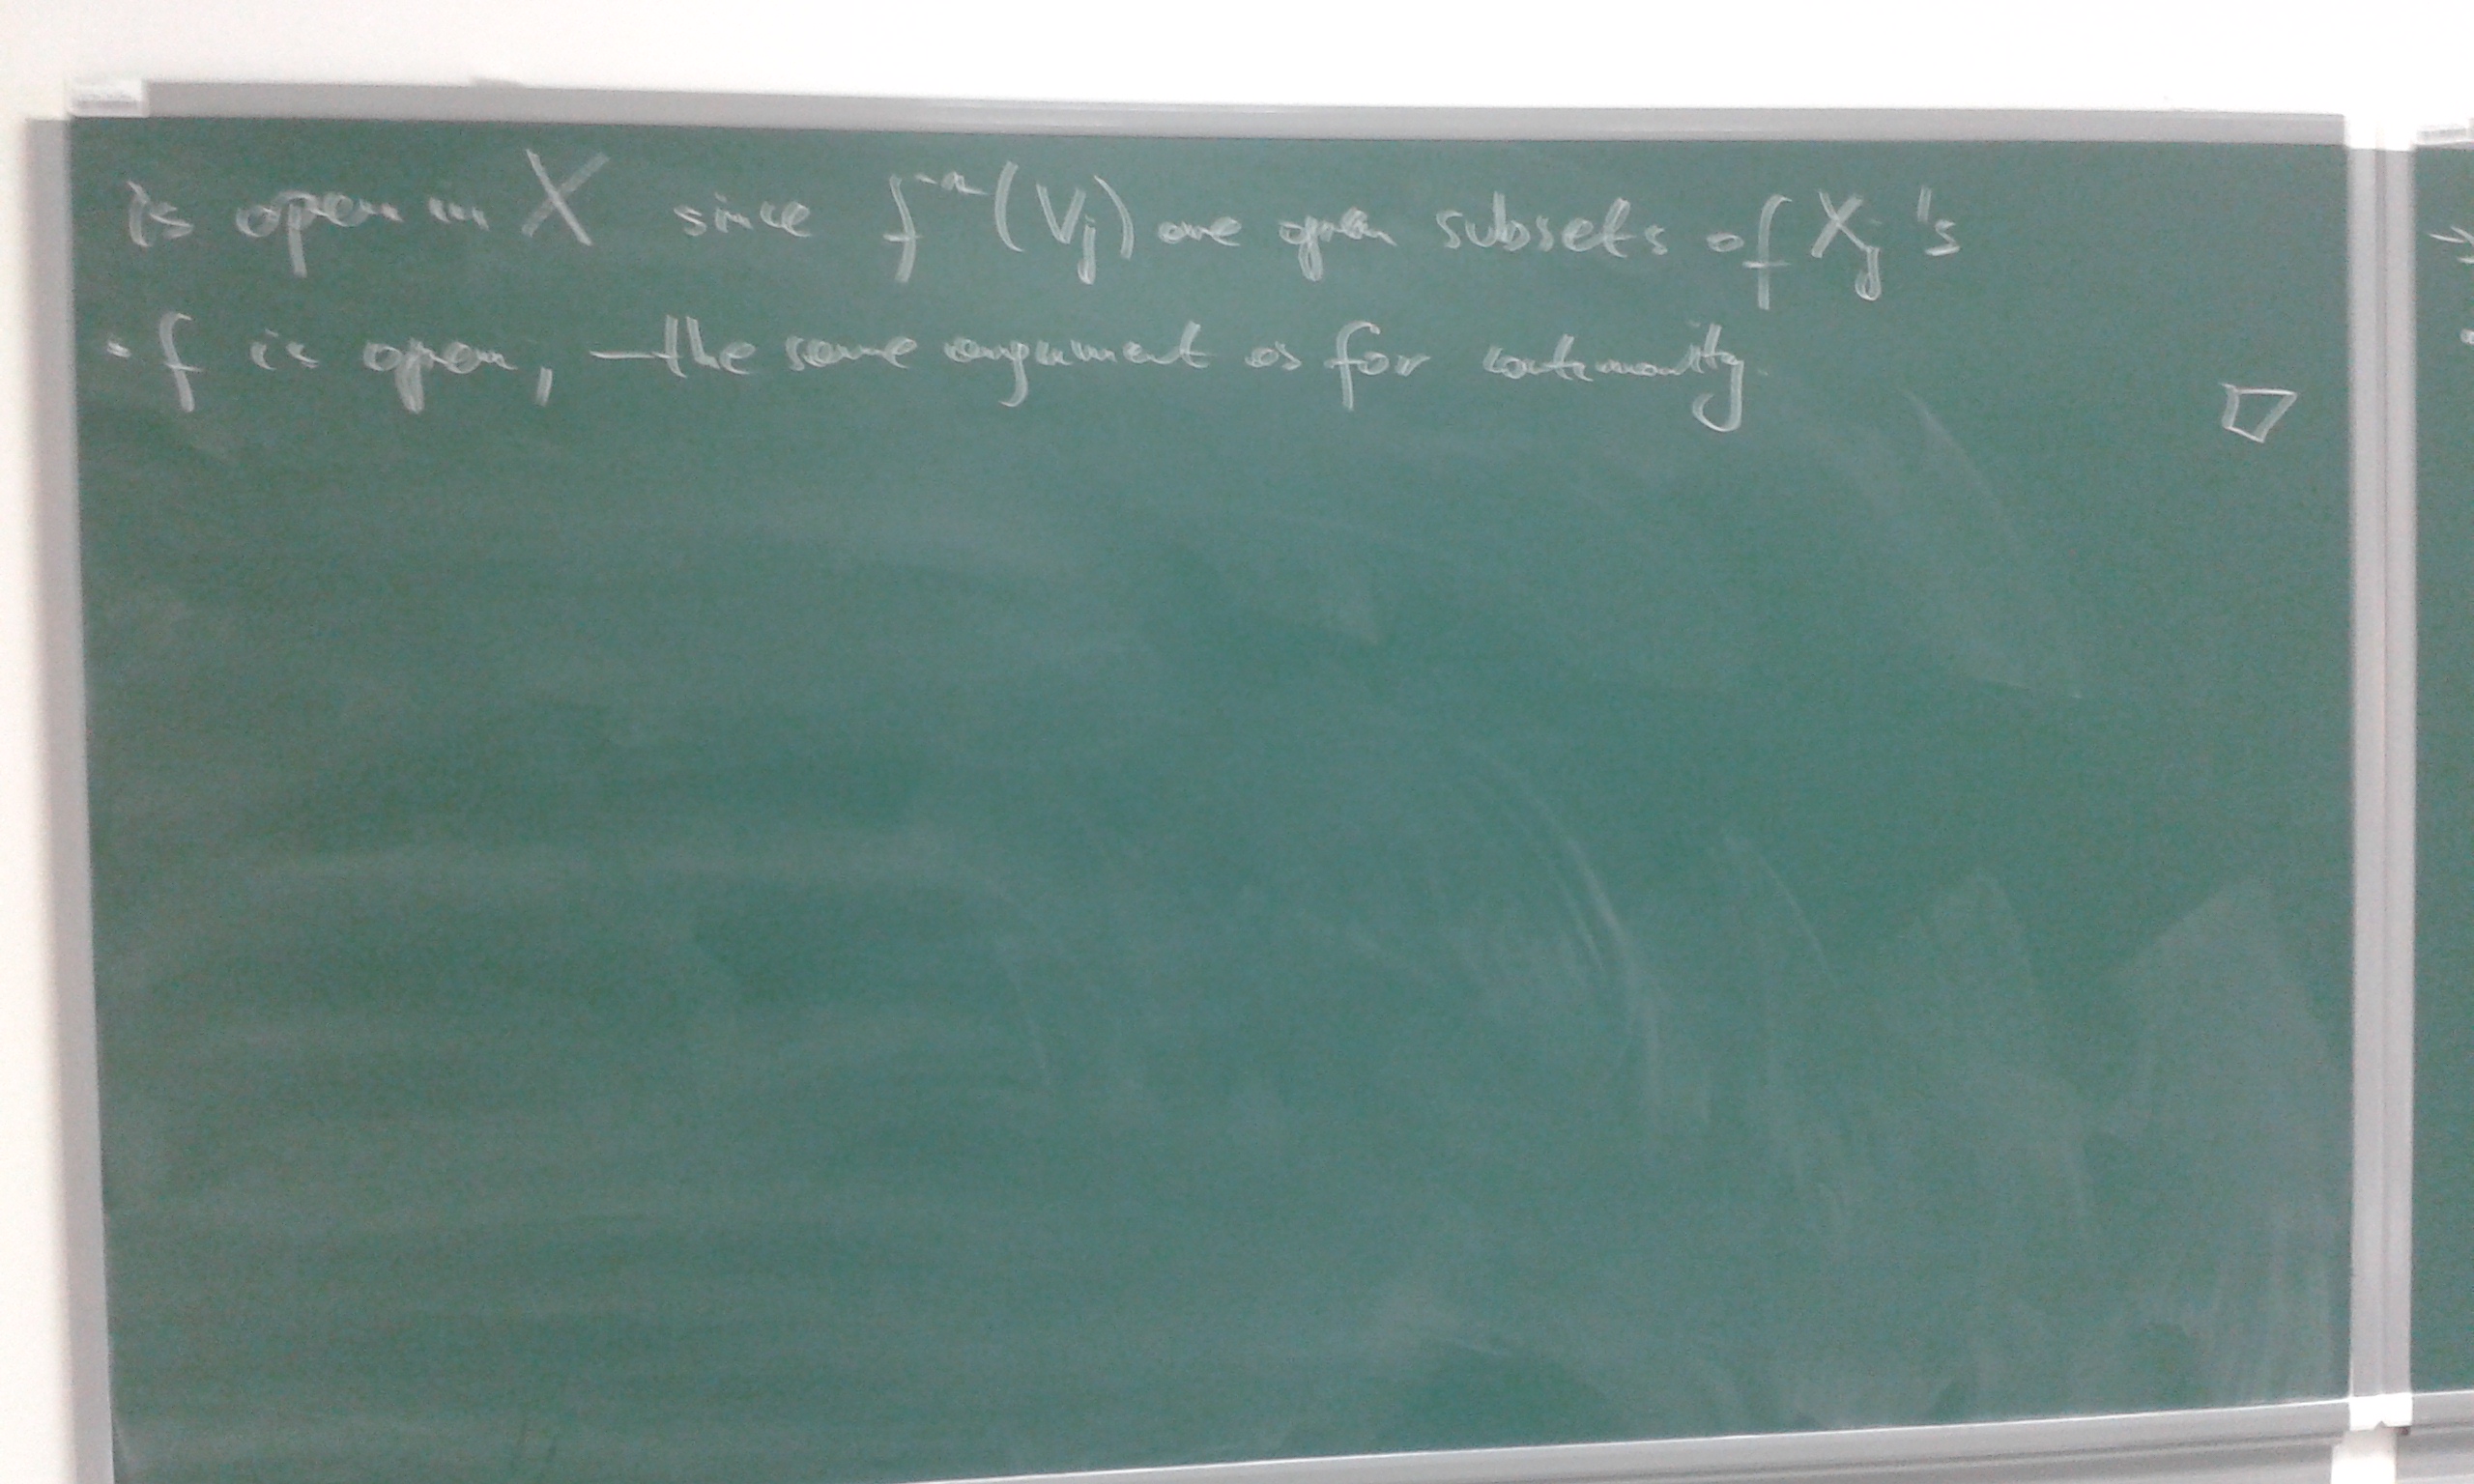 is open in X since f⁻¹(Vj) are open subsets of Xj's
· f is open, – the same argument as for continuity. □